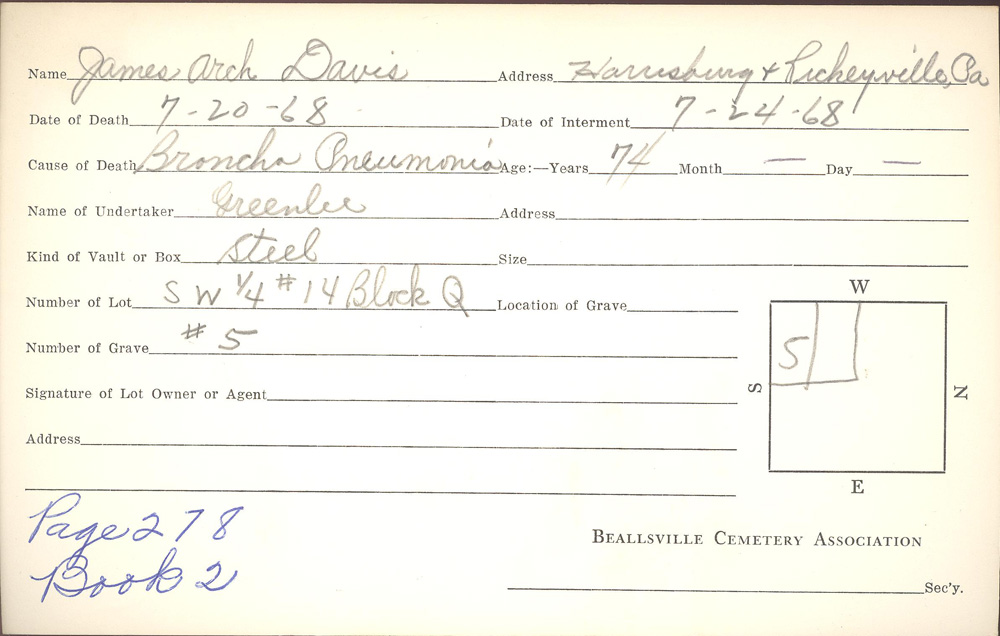 Name James Arch Davis Address Harrisburg + Richeyville, Pa
Date of Death 7-20-68 Date of Interment 7-24-68
Cause of Death Broncho Pneumonia Age:—Years 74 Month — Day —
Name of Undertaker Greenlee Address
Kind of Vault or Box Steel Size
Number of Lot SW 1/4 #14 Block Q Location of Grave
Number of Grave #5
Signature of Lot Owner or Agent
Address
W
S 5 N
E
Page 278
Book 2
BEALLSVILLE CEMETERY ASSOCIATION
Sec'y.